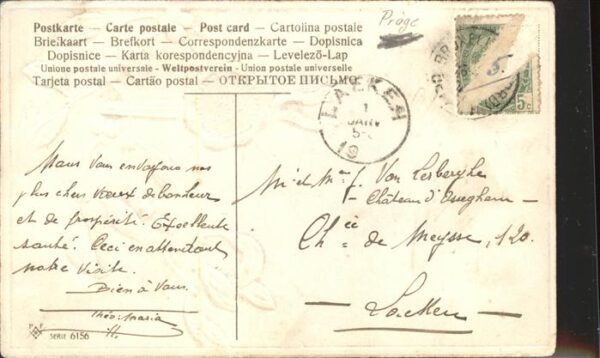 Postkarte – Carte postale – Post card – Cartolina postale
Briefkaart – Brefkort – Correspondenzkarte – Dopisnica
Dopisnice – Karta korespondencyjna – Levelező-Lap
Unione postale universale – Weltpostverein – Union postale universelle
Tarjeta postal – Cartão postal – ОТКРЫТОЕ ПИСЬМО
5.
5c
LAEKEN
1
JANV
5-
19
Nous vous envoyons nos
plus chers vœux de bonheur
et de prospérité. Excellente
santé. Ceci en attendant
notre visite.
Bien à vous
Théo-Maria
H.
Mr et Mme J. Van Lerberghe
- Château d'
Ch ée de Meysse, 120.
Laeken
SERIE 6156